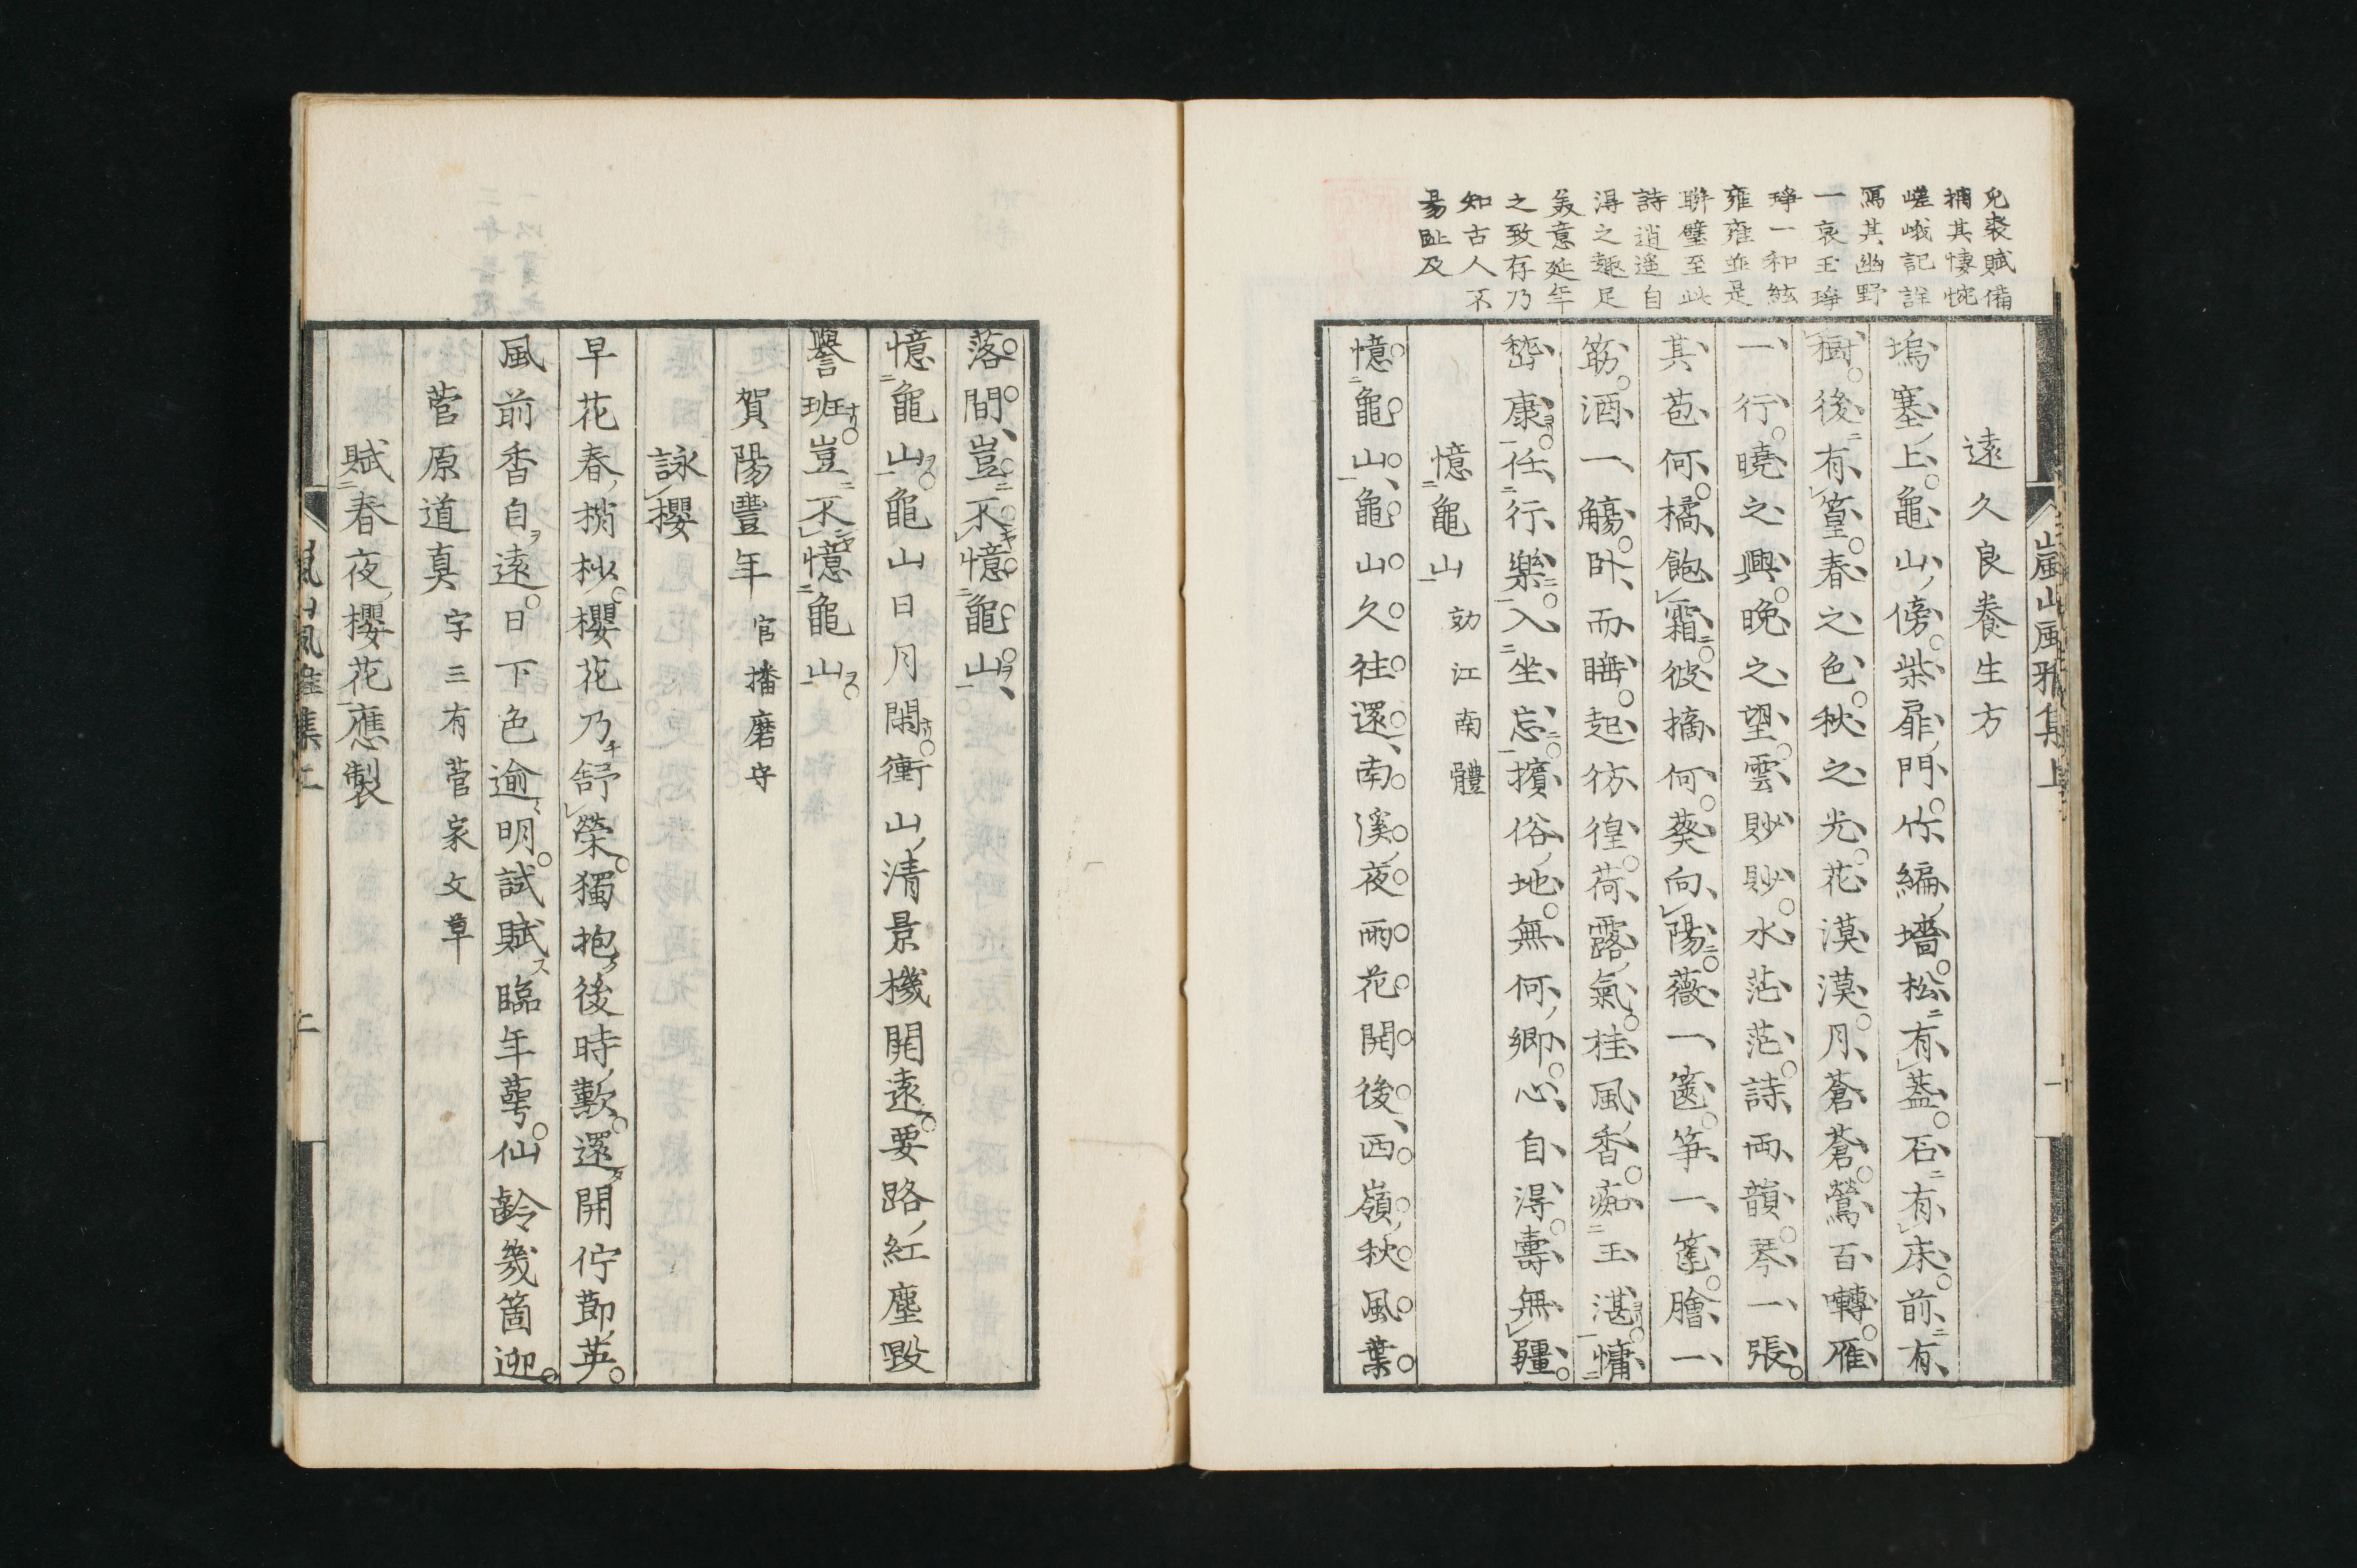 兒裘賦備
摛其悽惋
嵯峨記詳
寫其幽野
一哀玉琤
琤一和絃
雍雍並是
聯璧至此
詩逍遙自
得之趣足
羨意延年
之致存乃
知古人不
易趾及
嵐山風雅集上
一
遠久良養生方
塢塞上龜山傍柴扉門竹編墻松有蓋石有床前有
樹後有篁春之色秋之光花漠漠月蒼蒼鶯百囀雁
一行曉之興晚之望雲眇眇水茫茫詩兩韻琴一張
其苞何橘飽霜彼摘何葵向陽薇一篋筍一筐膾一
筯酒一觴卧而睡起彷徨荷露氣桂風香痴王湛慵
嵆康任行樂入坐忘擯俗地無何鄉心自得壽無疆
憶龜山 効江南體
憶龜山龜山久往還南溪夜雨花開後西嶺秋風葉
落間豈不憶龜山
憶龜山龜山日月閑衝山清景機開遠要路紅塵毀
譽班豈不憶龜山
賀陽豐年 官播磨守
詠櫻
早花春梢杪櫻花乃舒榮獨抱後時歎還開佇節英
風前香自遠日下色逾明試賦臨年萼仙齡幾箇迎
菅原道真 字三有菅家文草
賦春夜櫻花應製
二